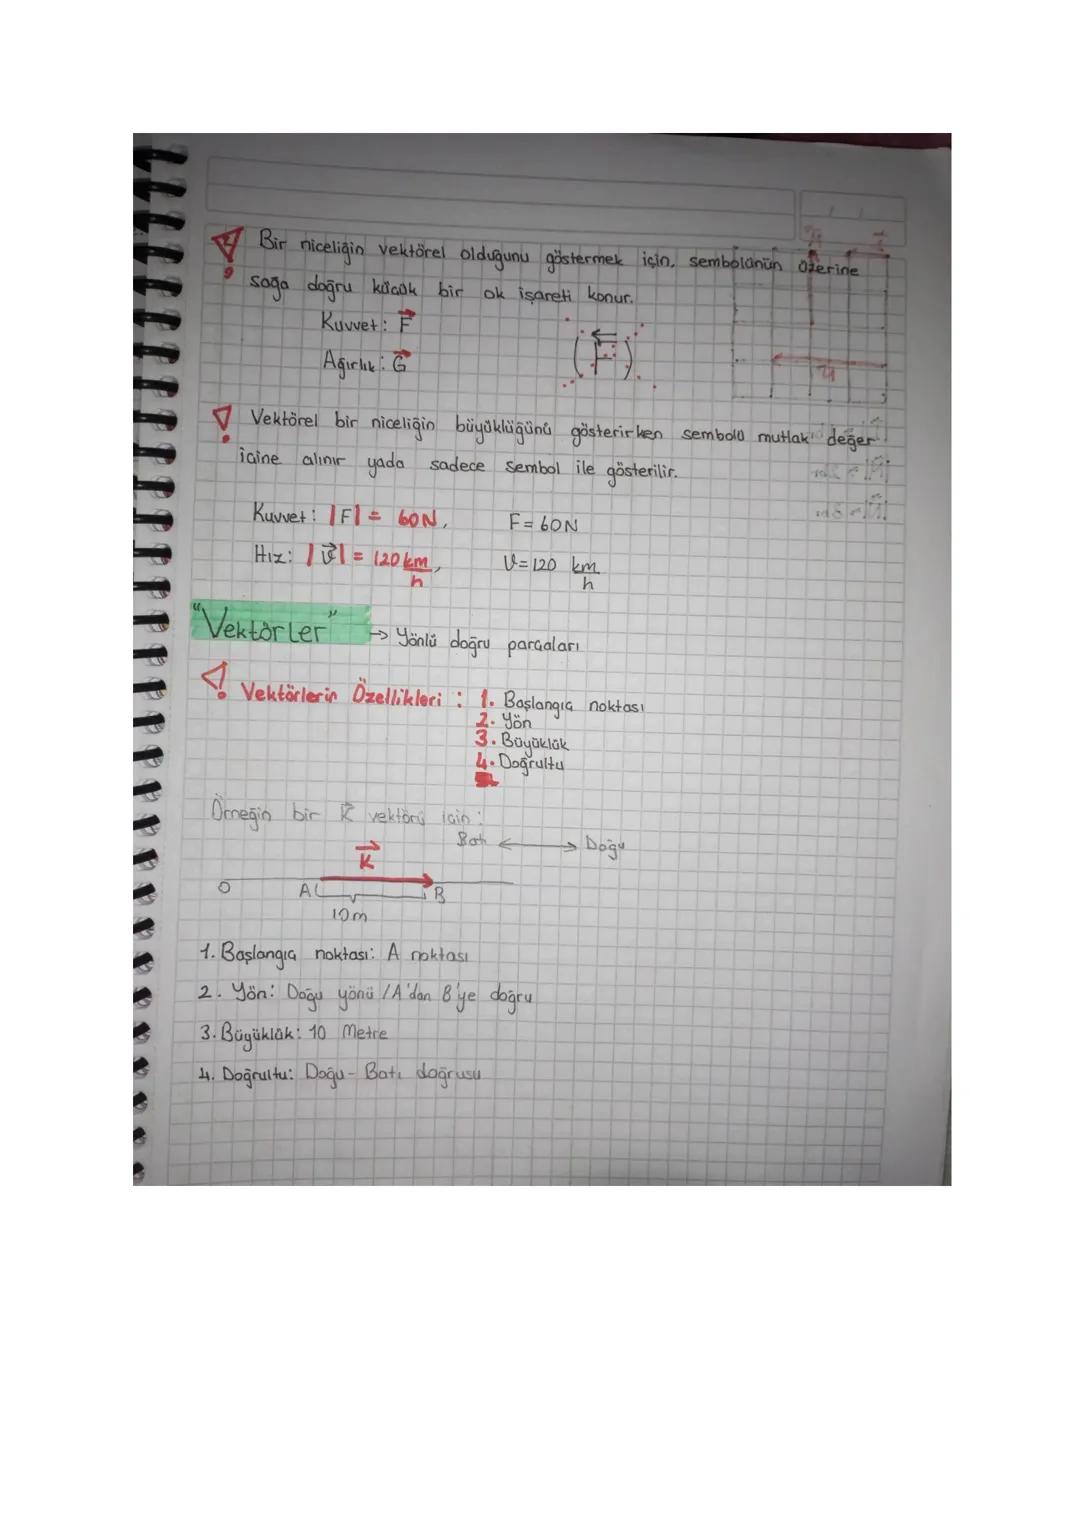 Bir niceliğin vektörel olduğunu göstermek için, sembolünün üzerine
sağa doğru küçük bir ok işareti konur.
Kuvvet: F⃗
Ağırlık: G⃗
(F)
Vektörel bir niceliğin büyüklüğünü gösterirken sembolü mutlak değer
içine alınır yada sadece sembol ile gösterilir.
Kuvvet: |F| = 60N, F = 60N
Hız: |v⃗| = 120 km/h, v = 120 km/h
"Vektörler" → Yönlü doğru parçaları
Vektörlerin Özellikleri : 1. Başlangıç noktası
2. Yön
3. Büyüklük
4. Doğrultu
Örneğin bir K⃗ vektörü için:
Batı ↔ Doğu
K⃗
O A B
10m
1. Başlangıç noktası: A noktası
2. Yön: Doğu yönü / A'dan B'ye doğru
3. Büyüklük: 10 Metre
4. Doğrultu: Doğu - Batı doğrusu